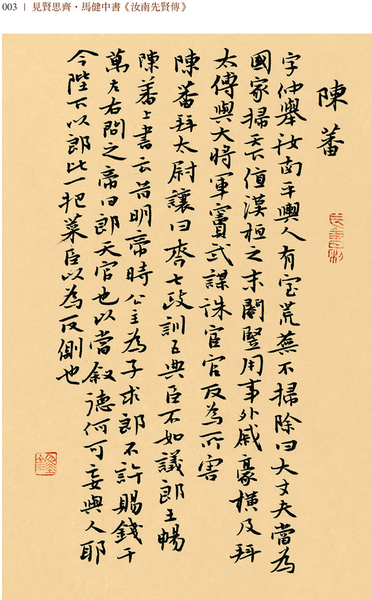 003 | 見賢思齊・馬健中書《汝南先賢傳》
陳蕃
字仲舉汝南平輿人有室荒蕪不掃除曰大丈夫當為
國家掃天下值漢桓之末閹豎用事外戚豪橫及拜
太傅與大將軍竇武謀誅宦官反為所害
陳蕃拜太尉讓曰齊七政訓五典臣不如議郎王暢
陳蕃上書云昔明帝時公主為子求郎不許賜錢千
萬左右問之帝曰郎天官也以當叙德何可妄與人耶
今陛下以郎比一把菜臣以為反側也